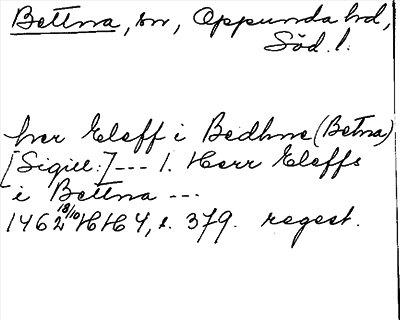 Bettna, sn, Oppunda hd,
Söd. l.
herr Eleff i Bedhne (Betna)
[Sigill:] --- 1. Herr Eleffs
i Bettna ---
1462 18/10 HH 4, s. 379. regest.